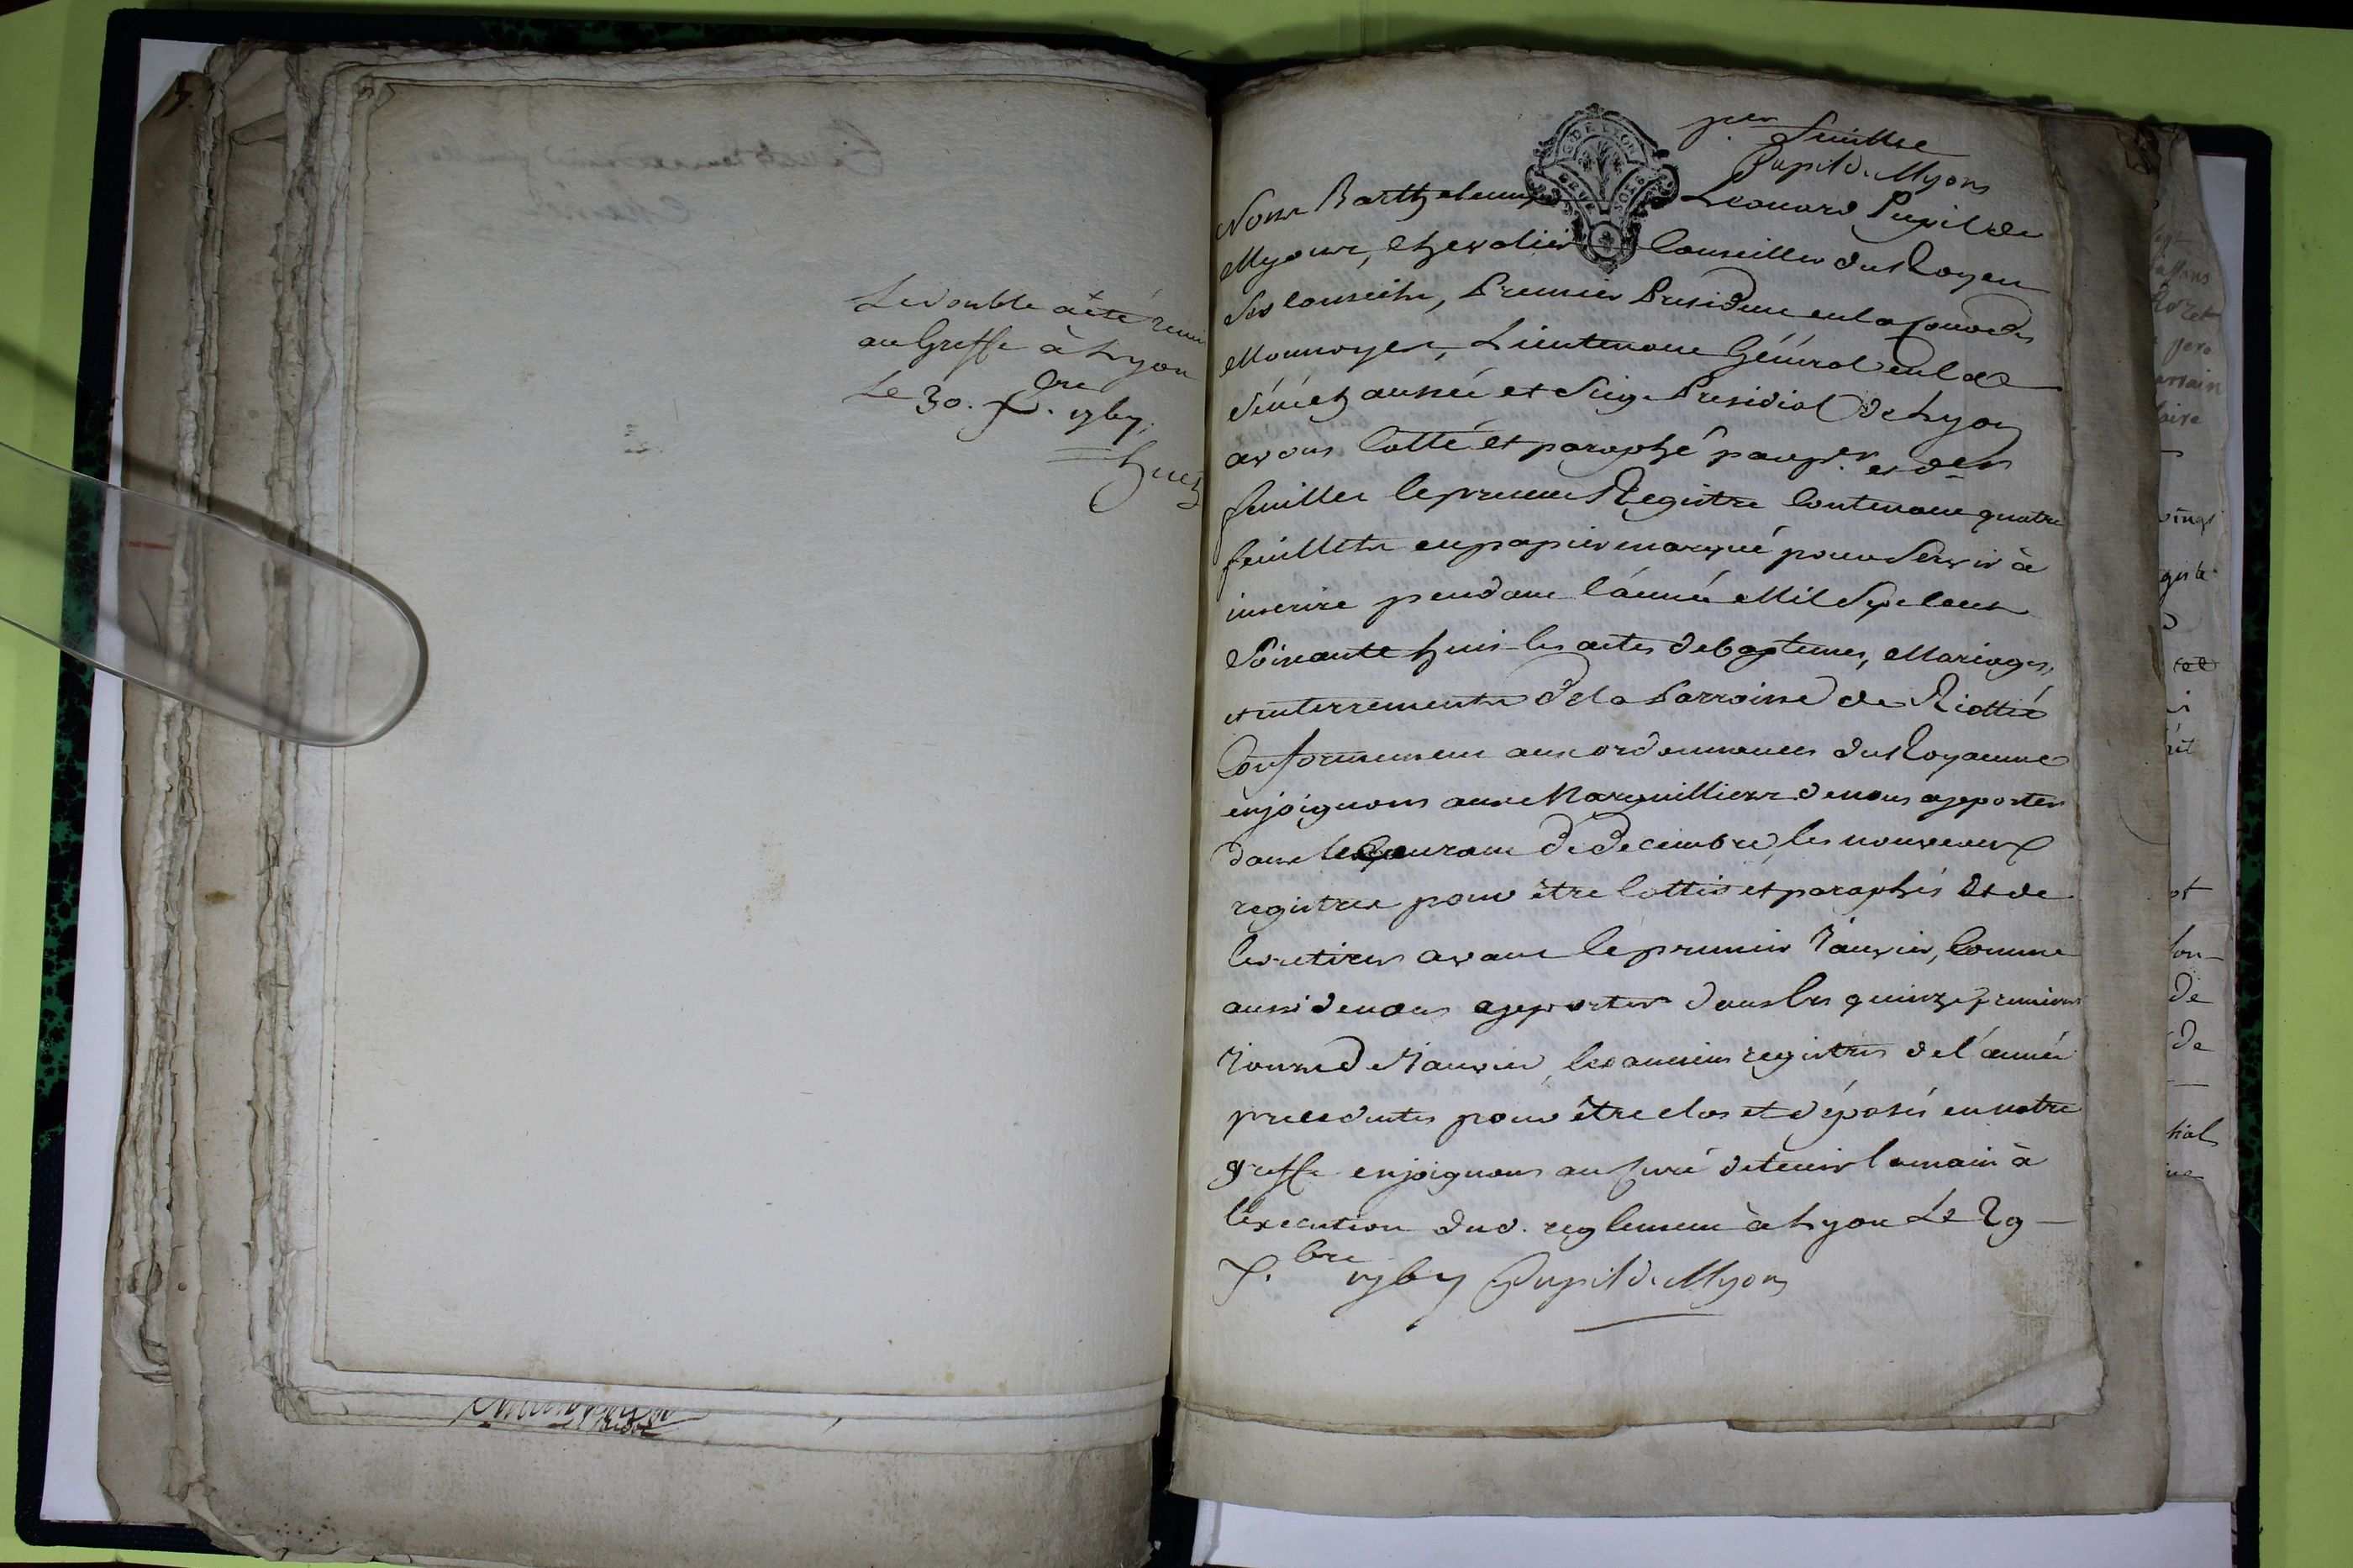 Le double a été remi
au Greffe à Lyon
Le 30. Xbre 1767.
huet
per feuillet
Pupil de Myons
Nous Barthelemy Leonard Pupil de
Myons, Chevalier Conseiller du Roy en
Ses conseils, Premier President en la Cour des
Monnoyes, Lieutenant Général en la
Sénéchaussée et Siege Presidial de Lyon
avons Cotté et paraphé par per et der
feuillet le present Registre Contenant quatre
feuillets en papier marqué pour Servir à
inscrire pendant l'année Mil Sept cent
Soixante huit les actes de baptemes, Mariages,
et enterrements de la Parroisse de Riottié
Conformement aux ordonnances du Royaume
enjoignons aux Marguilliers de nous apporter
dans le Courant de decembre, les nouveaux
registres pour être Cottés et paraphés Et de
les retirer avant le premier Janvier, Comme
aussi de nous apporter dans les quinze premiers
Jours de Janvier, les anciens registres de l'année
precedentes pour être clos et déposés en notre
greffe enjoignons au Curé de tenir la main à
l'execution dud. reglement à Lyon Le 29
Xbre 1767 Pupil de Myons